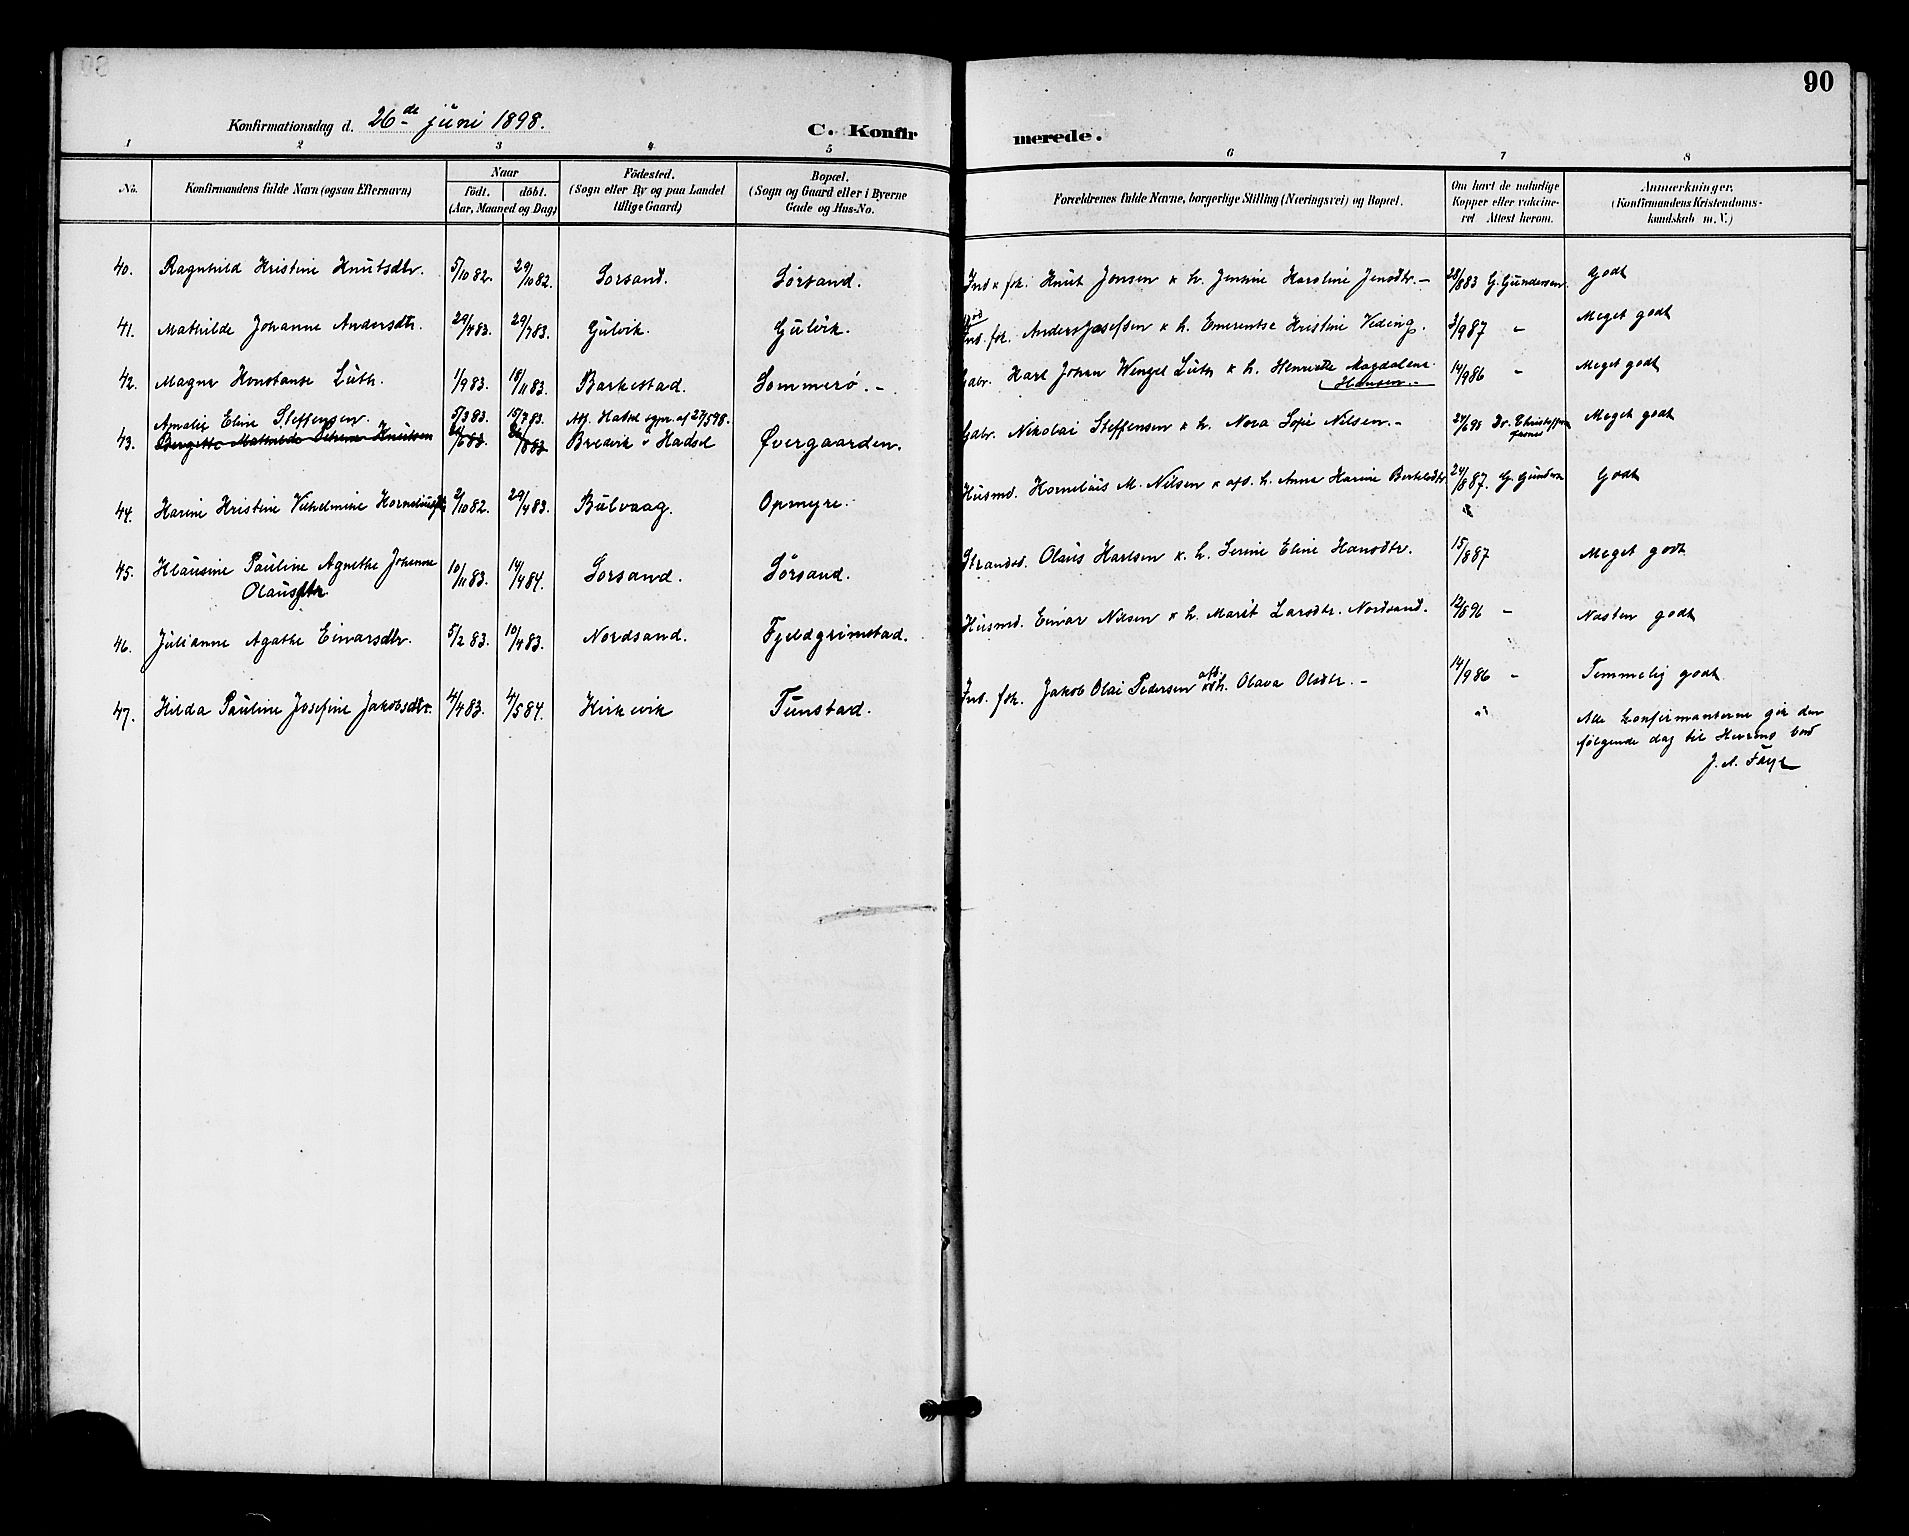 90
Konfirmationsdag d. 26de juni 1898.
C. Konfirmerede.
1 2 3 4 5 6 7 8
No. Konfirmandens fulde Navn (ogsaa Efternavn) Naar födt. döbt. (Aar, Maaned og Dag) Födested. (Sogn eller By og paa Landet tillige Gaard) Bopæl. (Sogn og Gaard eller i Byerne Gade og Hus-No. Forældrenes fulde Navne, borgerlige Stilling (Næringsvei) og Bopæl. Om havt de naturlige Kopper eller vakcineret Attest herom. Anmærkninger. (Konfirmandens Kristendomskundskab m. V.)
40. Ragnhild Kristine Knutsdtr. 5/10 82. 29/10 82. Sorsand. Sörsand. Ind. x fsk. Knut Jensen x h. Jensine Karoline Jensdtr. - 28/8 83 G. Gundersen. Godt
41. Mathilde Johanne Andersdtr. 29/4 83. 29/7 83. Gulvik. Gulvik. Ind. fsk. Anders Josefsen x h. Emerentse Kristine Veding. 3/9 87 " Meget godt
42. Magna Konstanse Luth. 1/9 83. 18/11 83. Barkestad. Sommerø. - Gdbr. Karl Johan Wengel Luth x h. Henriette Magdalene Hansen. - 14/9 86 " Meget godt
43. Amalie Eline Steffensen. 5/3 83. 15/7 83. Att. Hadsel sgpr. af 27/5 98.
Bergitte Mathilde Petrine Knutsen Bredvik i Hadsel Øvergaarden. Gdbr. Nikolai Steffensen x h. Nora Sofie Nilsen. - 24/6 98 Dr. Meget godt
44. Karine Kristine Vilhelmine Korneliusdtr. 2/10 82. 29/4 83. Bulvaag. Opmyre. Husmd. Kornelius M. Nilsen x afd. h. Anne Karine Bertelsdtr. 24/8 87. G. Gundersen Godt
45. Klausine Pauline Agnethe Johanne Olausdtr. 10/11 83. 14/4 84. Sorsand. Sörsand. Strands. Olaus Karlsen x. h. Serine Eline Hansdtr. 15/8 87 " Meget godt
46. Julianne Agathe Einarsdtr. 5/2 83. 10/4 83. Nordsand. Fjeldgrimstad. Husmd. Einar Nilsen x h. Marit Larsdtr. Nordsand. 12/8 96 " Næsten godt
47. Hilda Pauline Josefine Jakobsdtr. 4/4 83. 4/5 84. Kirkevik Tunstad. Ind. fsk. Jakob Olai Pedersen x afd. h. Olava Olsdtr. - 14/9 86 " Temmelig godt
Alle konfirmanterne gik den
følgende dag til Herrens bord
J. A. Faye